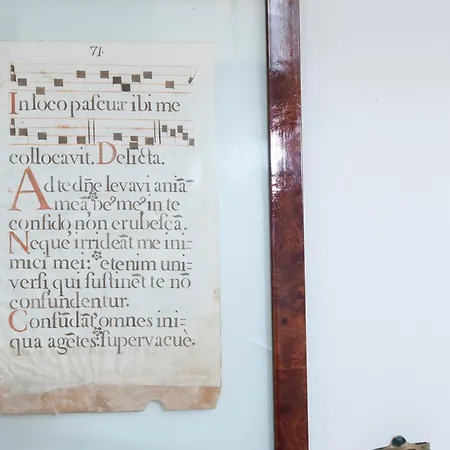 71.
In loco pascuæ ibi me
collocavit. Delicta.
Ad te dñe levavi aniã
meã, Deꝰ meꝰ in te
confido, non erubescã.
Neque irrideãt me ini-
mici mei: etenim uni-
versi qui sustinẽt te nõ
confundentur.
Confũdãt omnes ini-
qua agẽtes: supervacuè.